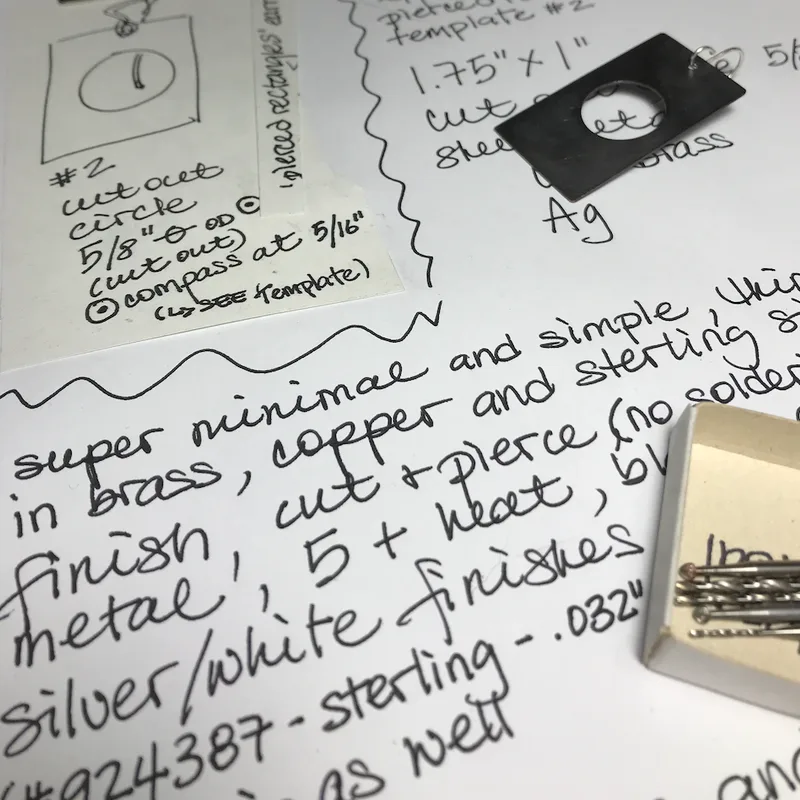 #2
cut out
circle
5/8" OD
(cut out)
compass at 5/16"
(↳ SEE Template)
'pierced rectangles'
pierced
template #2
1.75" x 1"
cut
sheet
brass
Ag
super minimal and simple,
in brass, copper and sterling
finish, cut + pierce (no solder
metal, 5 + heat,
silver/white finishes
#924387 - sterling - .032"
as well